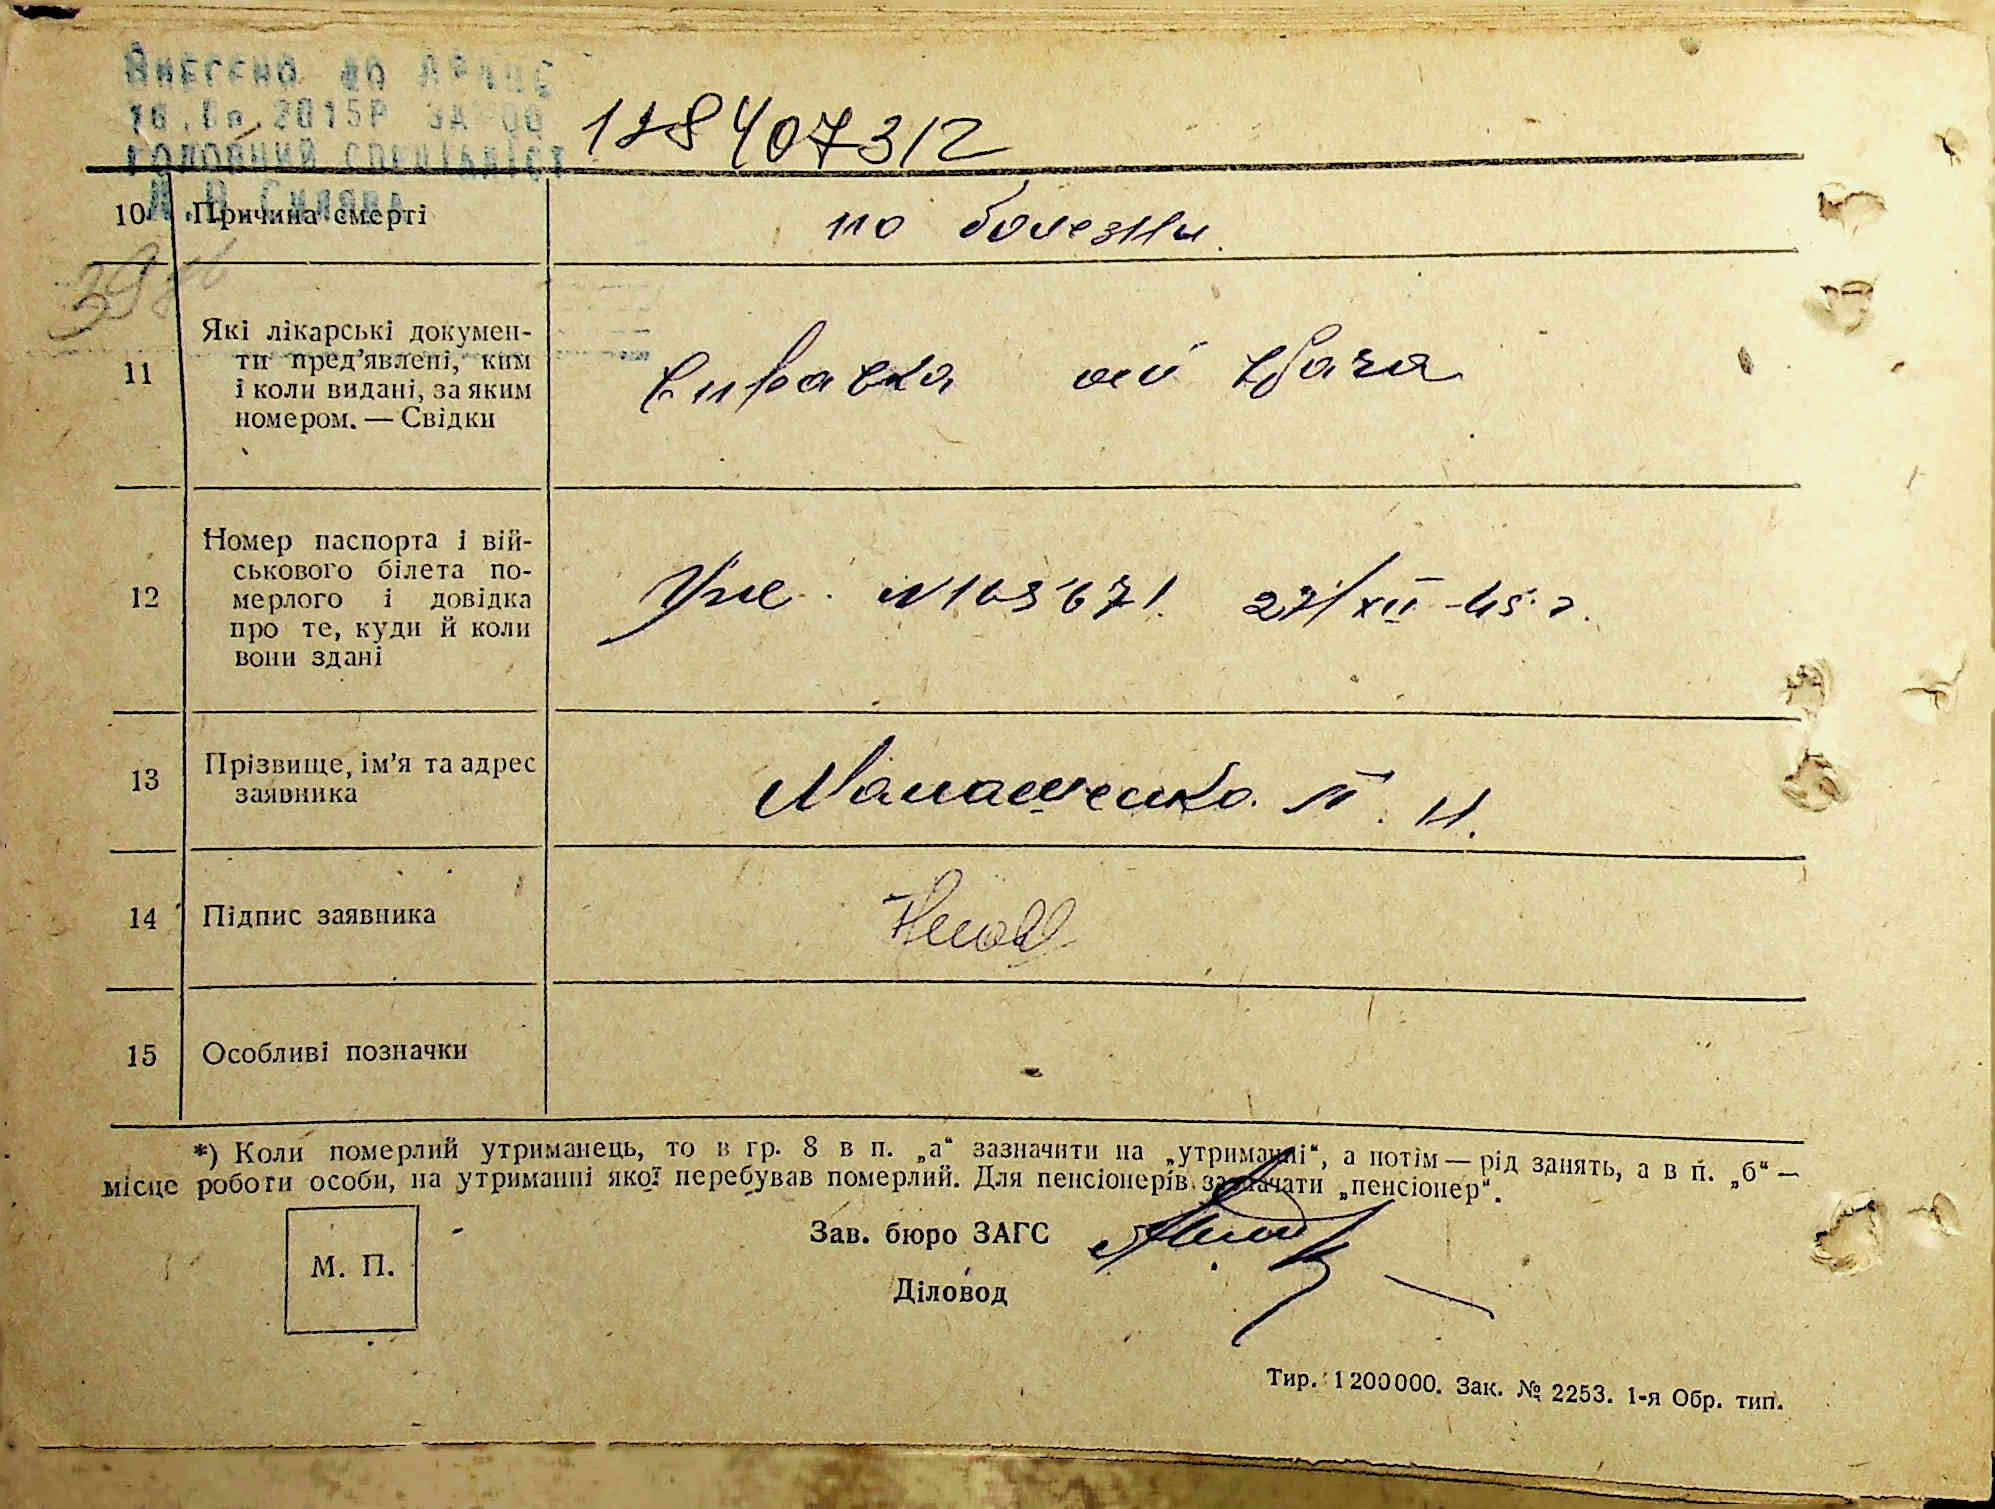 Внесено до АРАЦС
2015Р ЗА
128407312
головний спеціаліст
10 Причина смерті
по болезни.
11 Які лікарські докумен-
ти пред’явлені, ким
і коли видані, за яким
номером. — Свідки
Справка от врача
12 Номер паспорта і вій-
ського білета по-
мерлого і довідка
про те, куди й коли
вони здані
N 165671. 27/XII-45 г.
13 Прізвище, ім’я та адрес
заявника
14 Підпис заявника
15 Особливі позначки
*) Коли померлий утриманець, то в гр. 8 в п. „а“ зазначити на „утриманні“, а потім — рід занять, а в п. „б“ —
місце роботи особи, на утриманні якої перебував померлий. Для пенсіонерів зазначати „пенсіонер“.
Зав. бюро ЗАГС
М. П.
Діловод
Тир. 1200000. Зак. № 2253. 1-я Обр. тип.